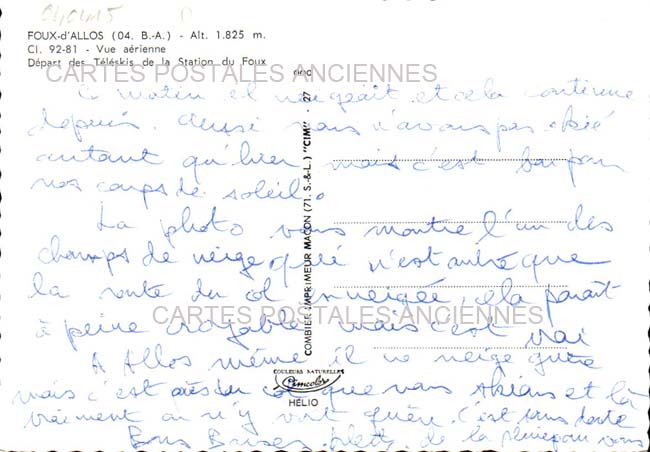 FOUX-d'ALLOS (04. B.-A.) - Alt. 1.825 m.
Cl. 92-81 - Vue aérienne
Départ des Téléskis de la Station du Foux
CARTES POSTALES ANCIENNES
matin il neigeait et cela continue
depuis. Aussi nous n'avons pas skié
autant qu'hier mais c'est bon pour
nos coups de soleil.
La photo vous montre l'un des
champs de neige qui n'est autre que
la route du col enneigée, cela paraît
à peine croyable mais c'est vrai
A Allos même il ne neige guère
mais c'est au col que nous skions et là
vraiment on n'y voit guère. C'est sans doute
Bons Baisers de la pour vous
CARTES POSTALES ANCIENNES
COMBIER IMPRIMEUR MACON (71. S.-&-L.) "CIM" - 27
COULEURS NATURELLES
Cimcolor
HÉLIO